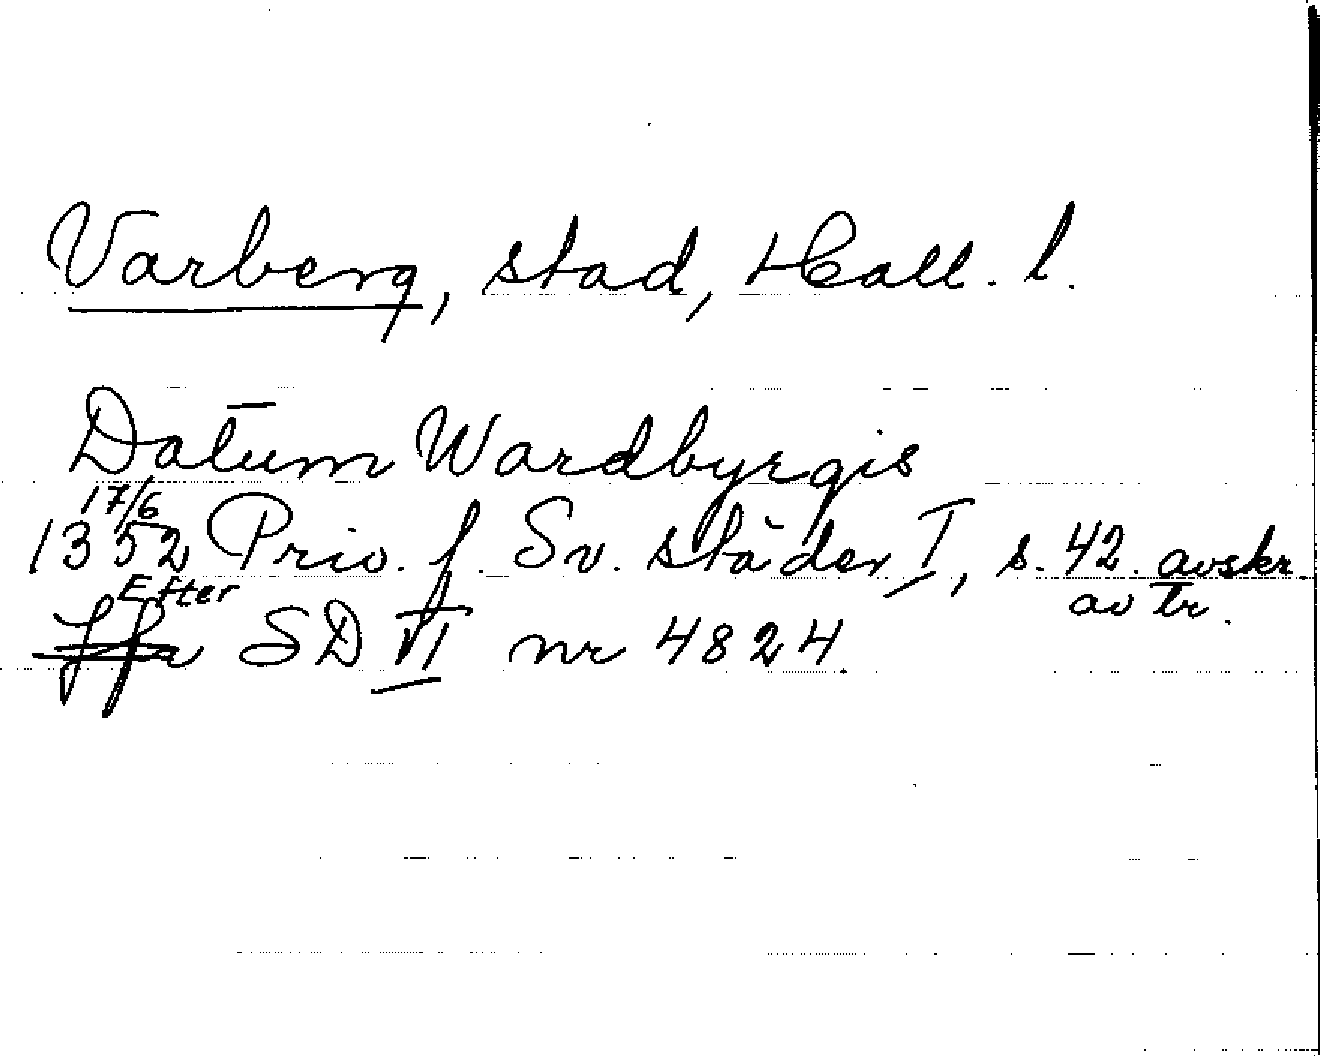 Varberg, stad, Hall. l.
Datum Wardbyrgis
17/6
1352 Priv. f. Sv. städer I, s. 42. avskr.
av tr.
Efter
SD VI nr 4824.